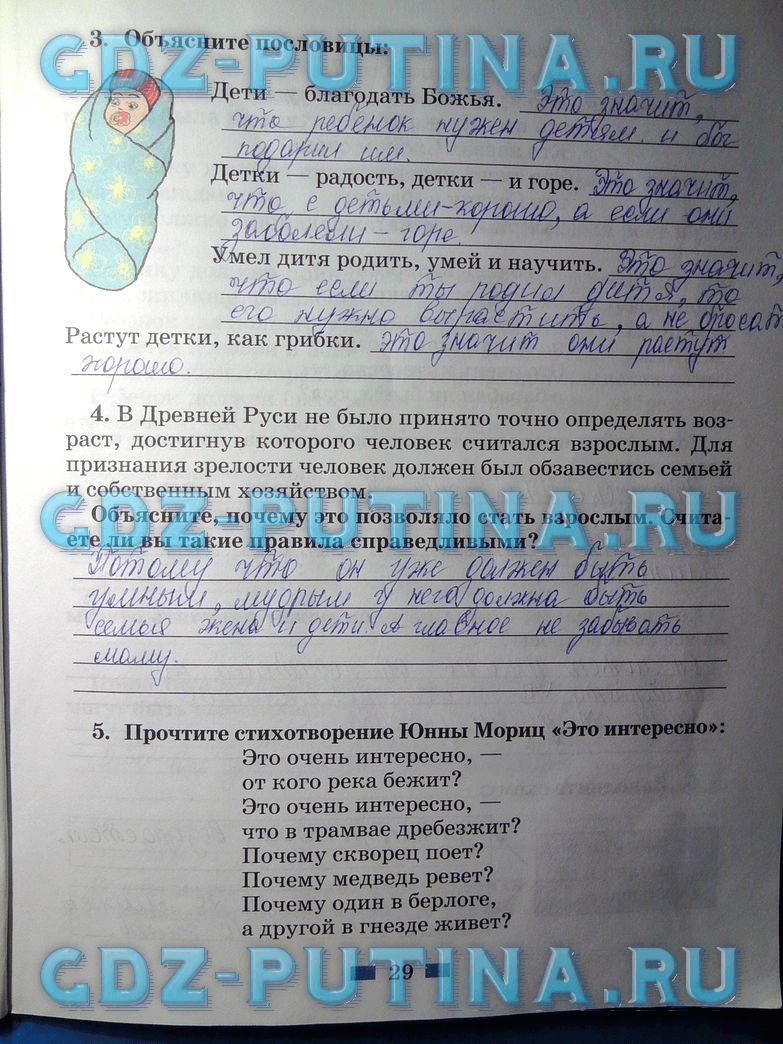 3. Объясните пословицы:
GDZ-PUTINA.RU
Дети — благодать Божья. Это значит,
что ребенок нужен детям и бог
подарил им.
Детки — радость, детки — и горе. Это значит,
что с детьми-хорошо, а если они
заболели - горе.
Умел дитя родить, умей и научить. Это значит,
что если ты родил дитя, то
его нужно вырастить, а не бросат
Растут детки, как грибки. это значит они растут
хорошо.
4. В Древней Руси не было принято точно определять воз-
раст, достигнув которого человек считался взрослым. Для
признания зрелости человек должен был обзавестись семьей
и собственным хозяйством.
GDZ-PUTINA.RU
Объясните, почему это позволяло стать взрослым. Счита-
ете ли вы такие правила справедливыми?
Потому что он уже должен быть
умным, мудрым у него должна быть
семья жена и дети. А главное не забывать
маму.
5. Прочтите стихотворение Юнны Мориц «Это интересно»:
Это очень интересно, —
от кого река бежит?
Это очень интересно, —
что в трамвае дребезжит?
Почему скворец поет?
Почему медведь ревет?
Почему один в берлоге,
а другой в гнезде живет?
GDZ-PUTINA.RU
29